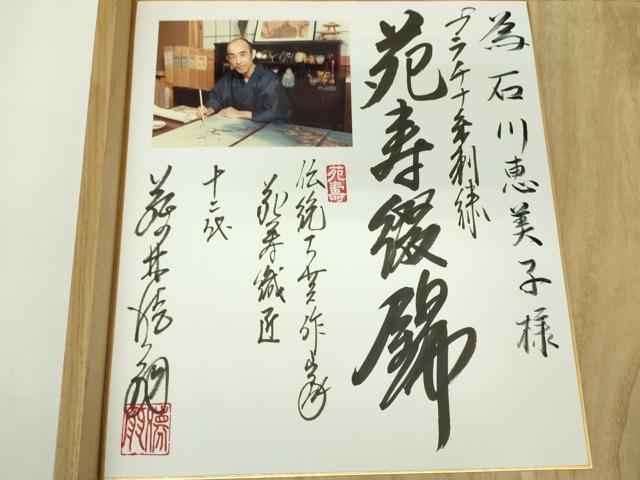 為石川恵美子様
プラチナ糸刺繍
苑寿綴錦
苑壽
伝統工芸作家
苑寿織匠
十二代